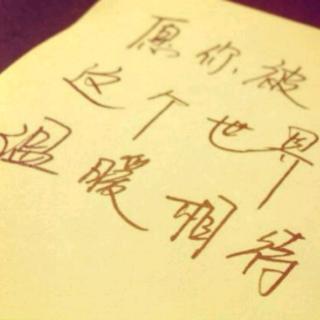 愿你被
这个世界
温暖相待